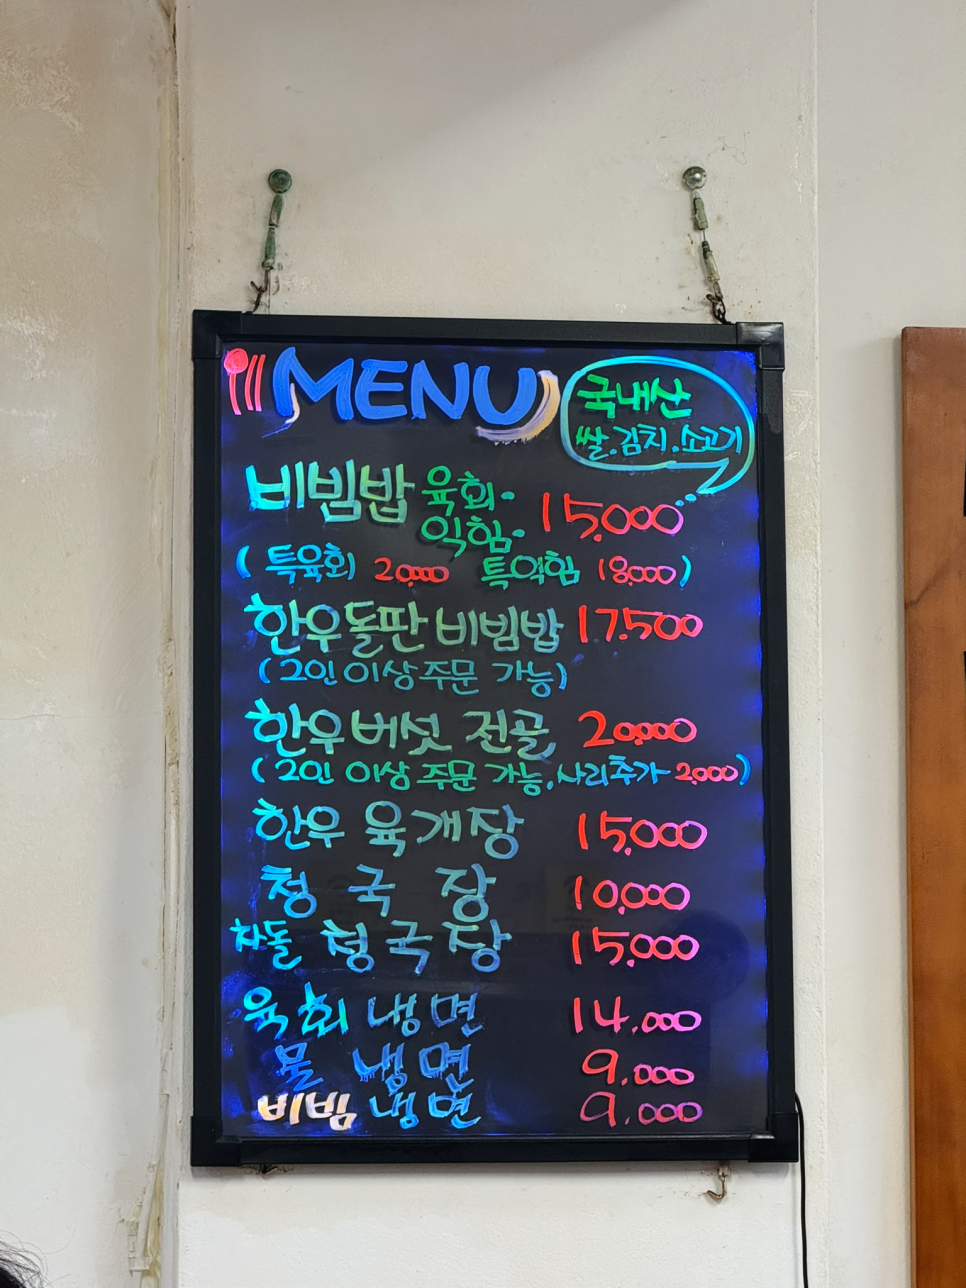 MENU
국내산
쌀.김치.소고기
비빔밥 육회·
익힘· 15,000
(특육회 20,000 특익힘 18,000)
한우돌판비빔밥 17.500
(2인이상주문 가능)
한우버섯 전골 20,000
(2인 이상 주문 가능, 사리추가 2,000)
한우 육개장 15,000
청국장 10,000
차돌 청국장 15,000
육회 냉면 14.000
물 냉면 9.000
비빔 냉면 9.000